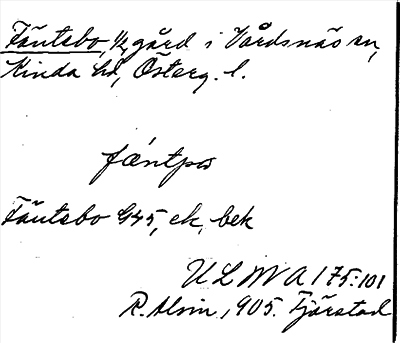 Fäntebo, ½ gård i Vårdsnäs sn,
Kinda hd, Österg. l.
fæntpω
Fäntebo G45, ek, bek
ULMA 175:101
R. Alvin, 1905. Fjärstad